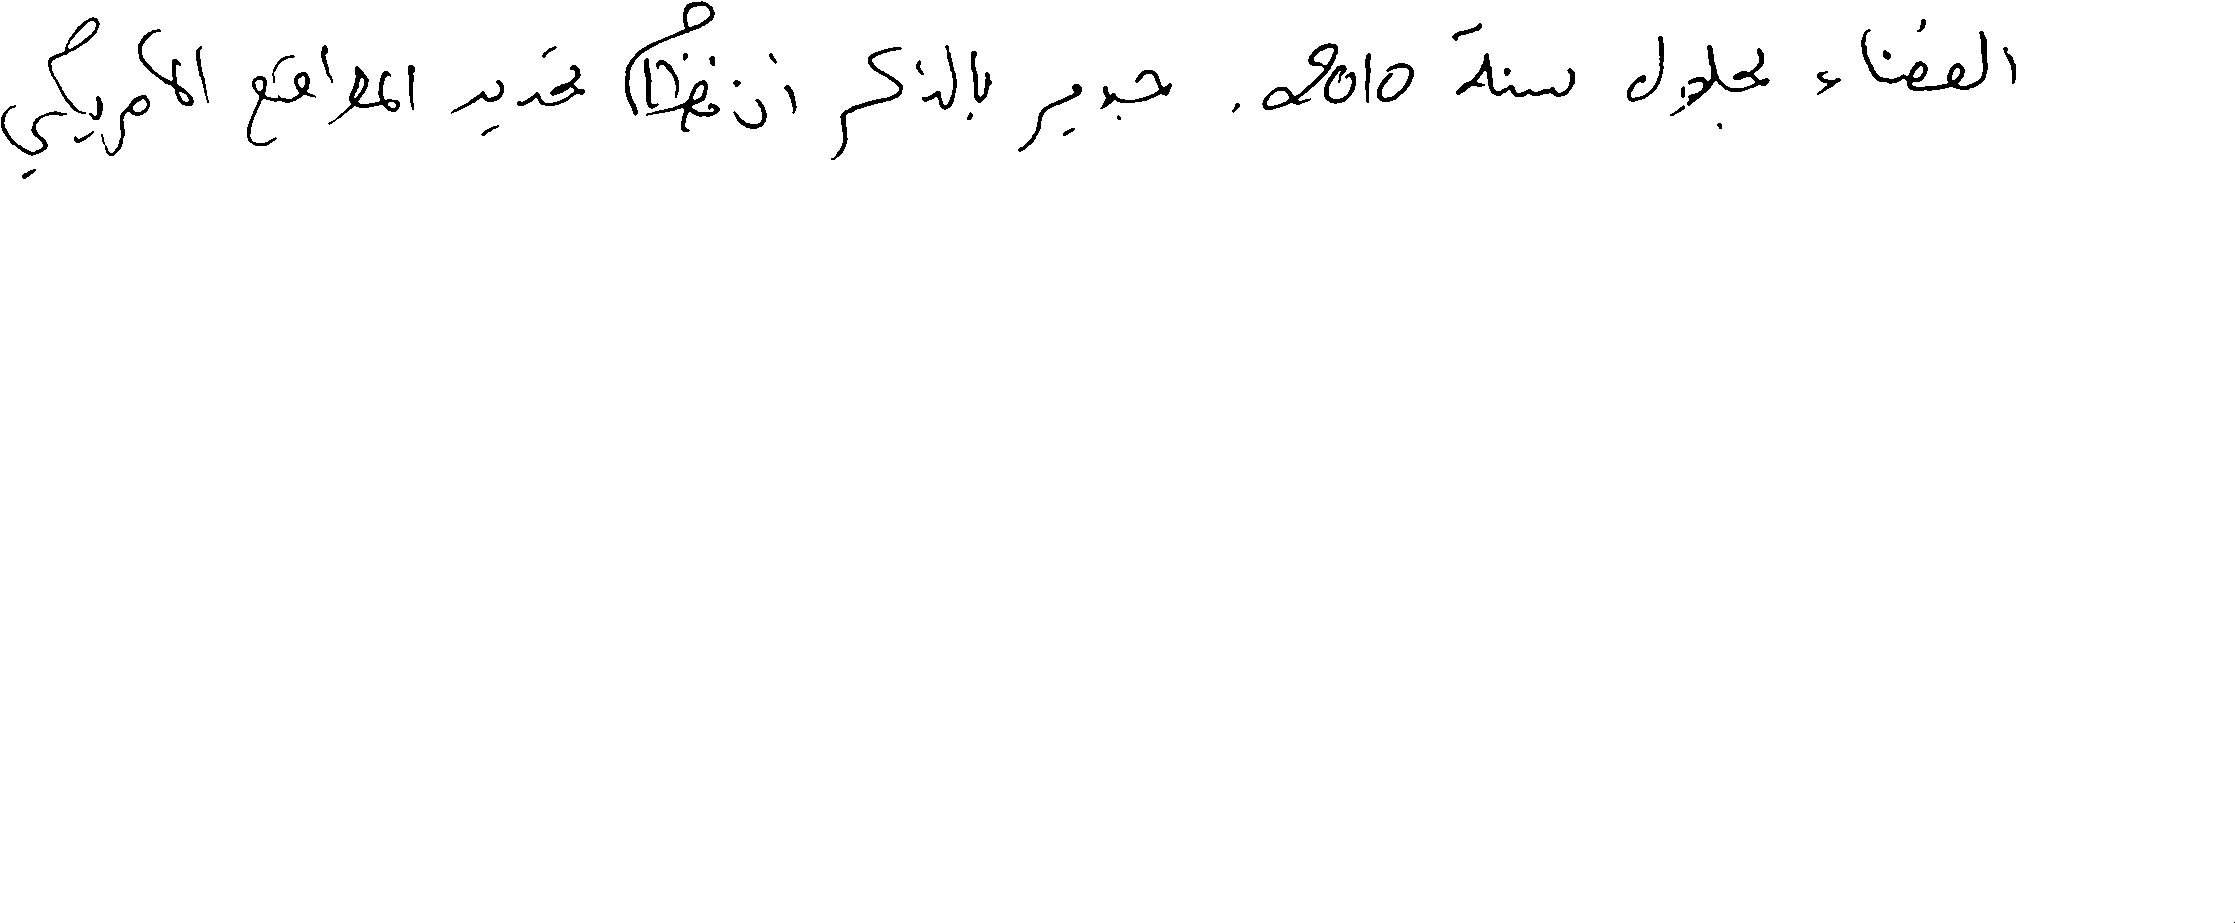 الفضاء بحلول سنة 2010. جدير بالذكر ان نظام تحديد المواقع الأمريكي